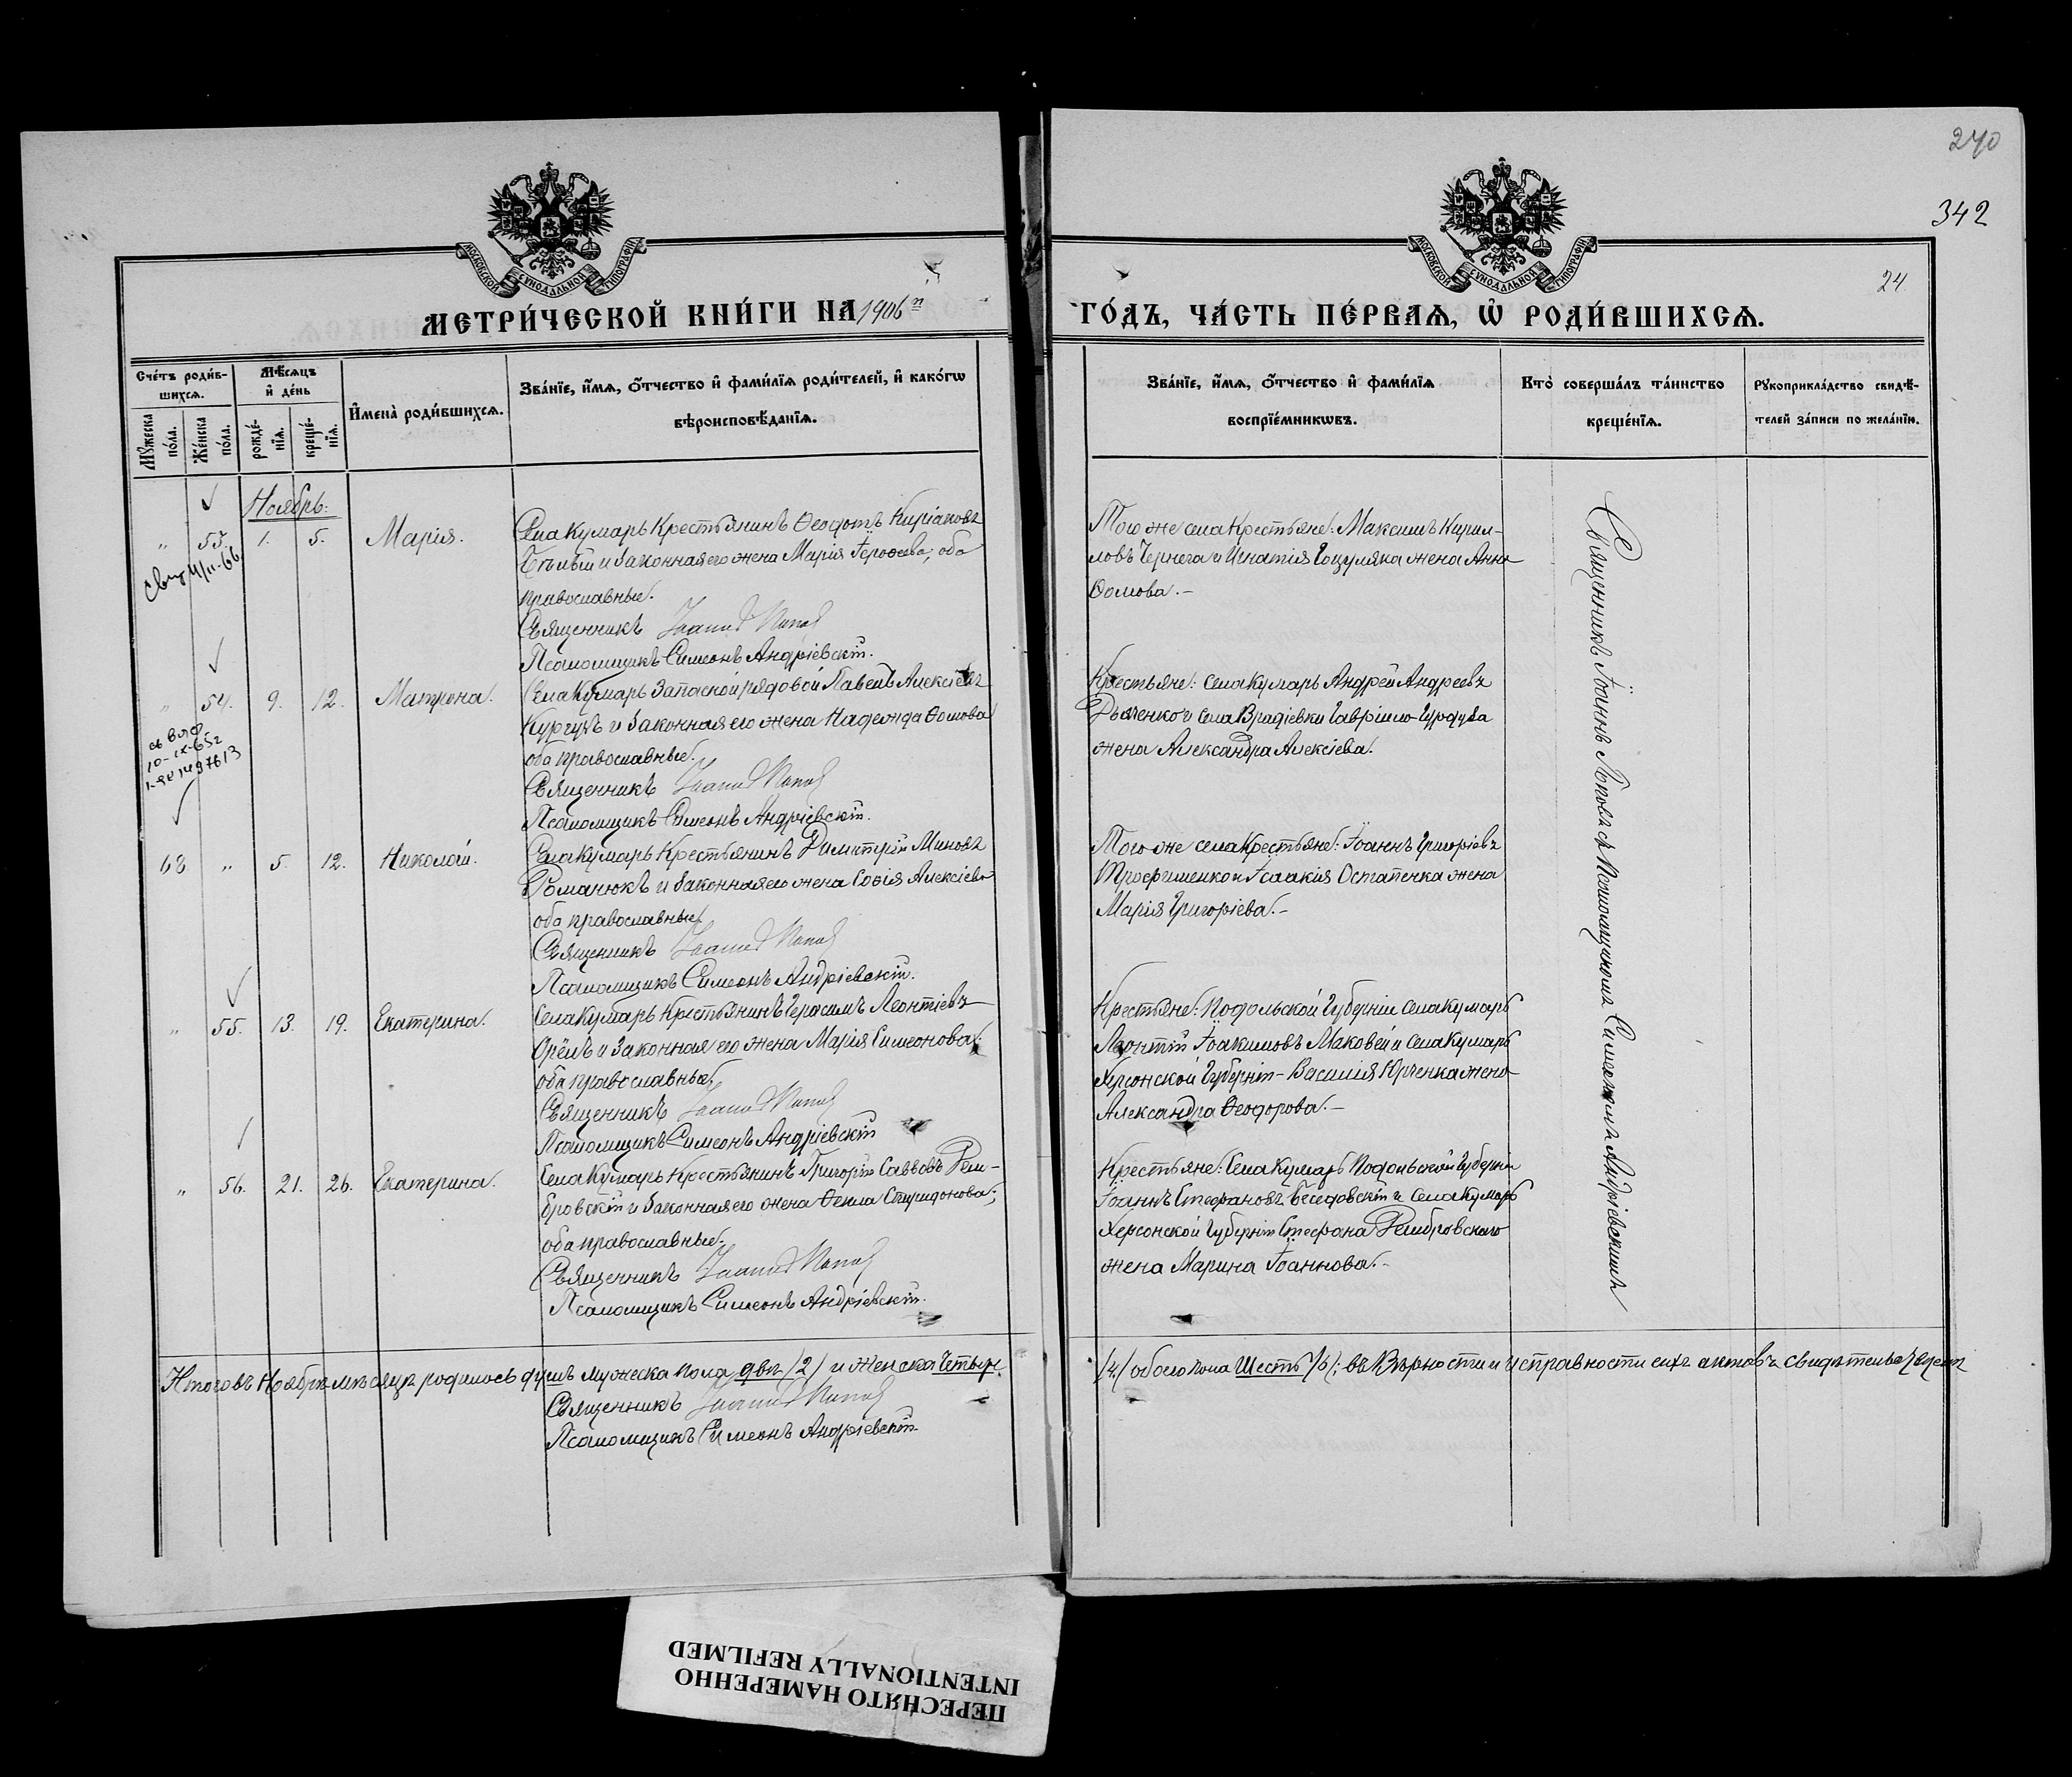 270
342
24.
МОСКОВСКОЙ СѴНОДАЛЬНОЙ ТИПОГРАФІИ
МОСКОВСКОЙ СѴНОДАЛЬНОЙ ТИПОГРАФІИ
МЕТРИ́ЧЕСКОЙ КНИ́ГИ НА 1906й
ГО́ДЪ, ЧА́СТЬ ПЕ́РВАѦ, Ѡ҆ РОДИ́ВШИХСѦ.
Сче́тъ роди́в-
шихсѧ.
Мꙋ́жеска по́ла.
Же́нска по́ла.
Мѣ́сѧцъ
и҆ де́нь
рожде́-
нїѧ.
креще́-
нїѧ.
И҆мена̀ роди́вшихсѧ.
Зва́нїе, и҆́мѧ, ѻ҆́тчество и҆ фами́лїѧ роди́телей, и҆ како́гѡ
вѣроисповѣ́данїѧ.
Зва́нїе, и҆́мѧ, ѻ҆́тчество и҆ фами́лїѧ
воспрїе́мникѡвъ.
Кто̀ соверша́лъ та́инство
креще́нїѧ.
Рꙋкоприкла́дство свидѣ́-
телей за́писи по жела́нїю.
Ноябрь:
„ 53. 1. 5. Марія.
Села Кумарь Крестьянинъ Ѳеодотъ Киріаковъ
и законная его жена Марія оба
православные.
Священникъ Іоаннъ Поповъ
Псаломщикъ Симеонъ Андріевскій.
Того же села Крестьяне: Максимъ Кирил-
ловъ Чернега и Игнатія Гоцуляка жена Анна
Ѳомова.-
„ 54. 9. 12. Матрона.
10-IX-65г
Села Кумарь Запасной рядовой Павелъ Алексіевъ
и законная его жена Надежда Ѳомова
оба православные.
Священникъ Іоаннъ Поповъ
Псаломщикъ Симеонъ Андріевскій.
Крестьяне: села Кумарь Андрей Андреевъ
Дьяченко и села Врадіевки Гавріила
жена Александра Алексіева.
68 „ 5. 12. Николай.
Села Кумарь Крестьянинъ Димитрій Миновъ
Романюкъ и законная его жена Софія Алексіева
оба православные.
Священникъ Іоаннъ Поповъ
Псаломщикъ Симеонъ Андріевскій.
Того же села Крестьяне: Іоаннъ Григоріевъ
Трофименко и Ісаакія Остапенка жена
Марія Григоріева.-
„ 55. 13. 19. Екатерина.
Села Кумарь Крестьянинъ Герасимъ Леонтіевъ
Орёлъ и законная его жена Марія Симеонова;
оба православные.
Священникъ Іоаннъ Поповъ
Псаломщикъ Симеонъ Андріевскій
Крестьяне: Подольской Губерніи села Кумарь
Леонтій Іоакимовъ Маковей и села Кумарь
Херсонской Губерніи-Василія Юрченка жена
Александра Ѳеодорова.-
„ 56. 21. 26. Екатерина.
Села Кумарь Крестьянинъ Григорій Саввовъ Рем-
бровскій и законная его жена Ѳекла Спиридонова;
оба православные.
Священникъ Іоаннъ Поповъ
Псаломщикъ Симеонъ Андріевскій.
Крестьяне: Села Кумарь Подольской Губерніи
Іоаннъ Стефановъ Беседовскій и села Кумарь
Херсонской Губерніи Стефана Рембровскаго
жена Марина Іоаннова.-
Священникъ Іоаннъ Поповъ съ Псаломщикомъ Симеономъ Андріевскимъ
Итого въ Ноябрѣ мѣсяцѣ родилось душъ мужеска пола два /2/ и женска четыре
/4/ обоего пола Шесть /6/; въ вѣрности и исправности сихъ актовъ свидѣтельствуемъ
Священникъ Іоаннъ Поповъ
Псаломщикъ Симеонъ Андріевскій.
ПЕРЕСНЯТО НАМЕРЕННО
INTENTIONALLY REFILMED